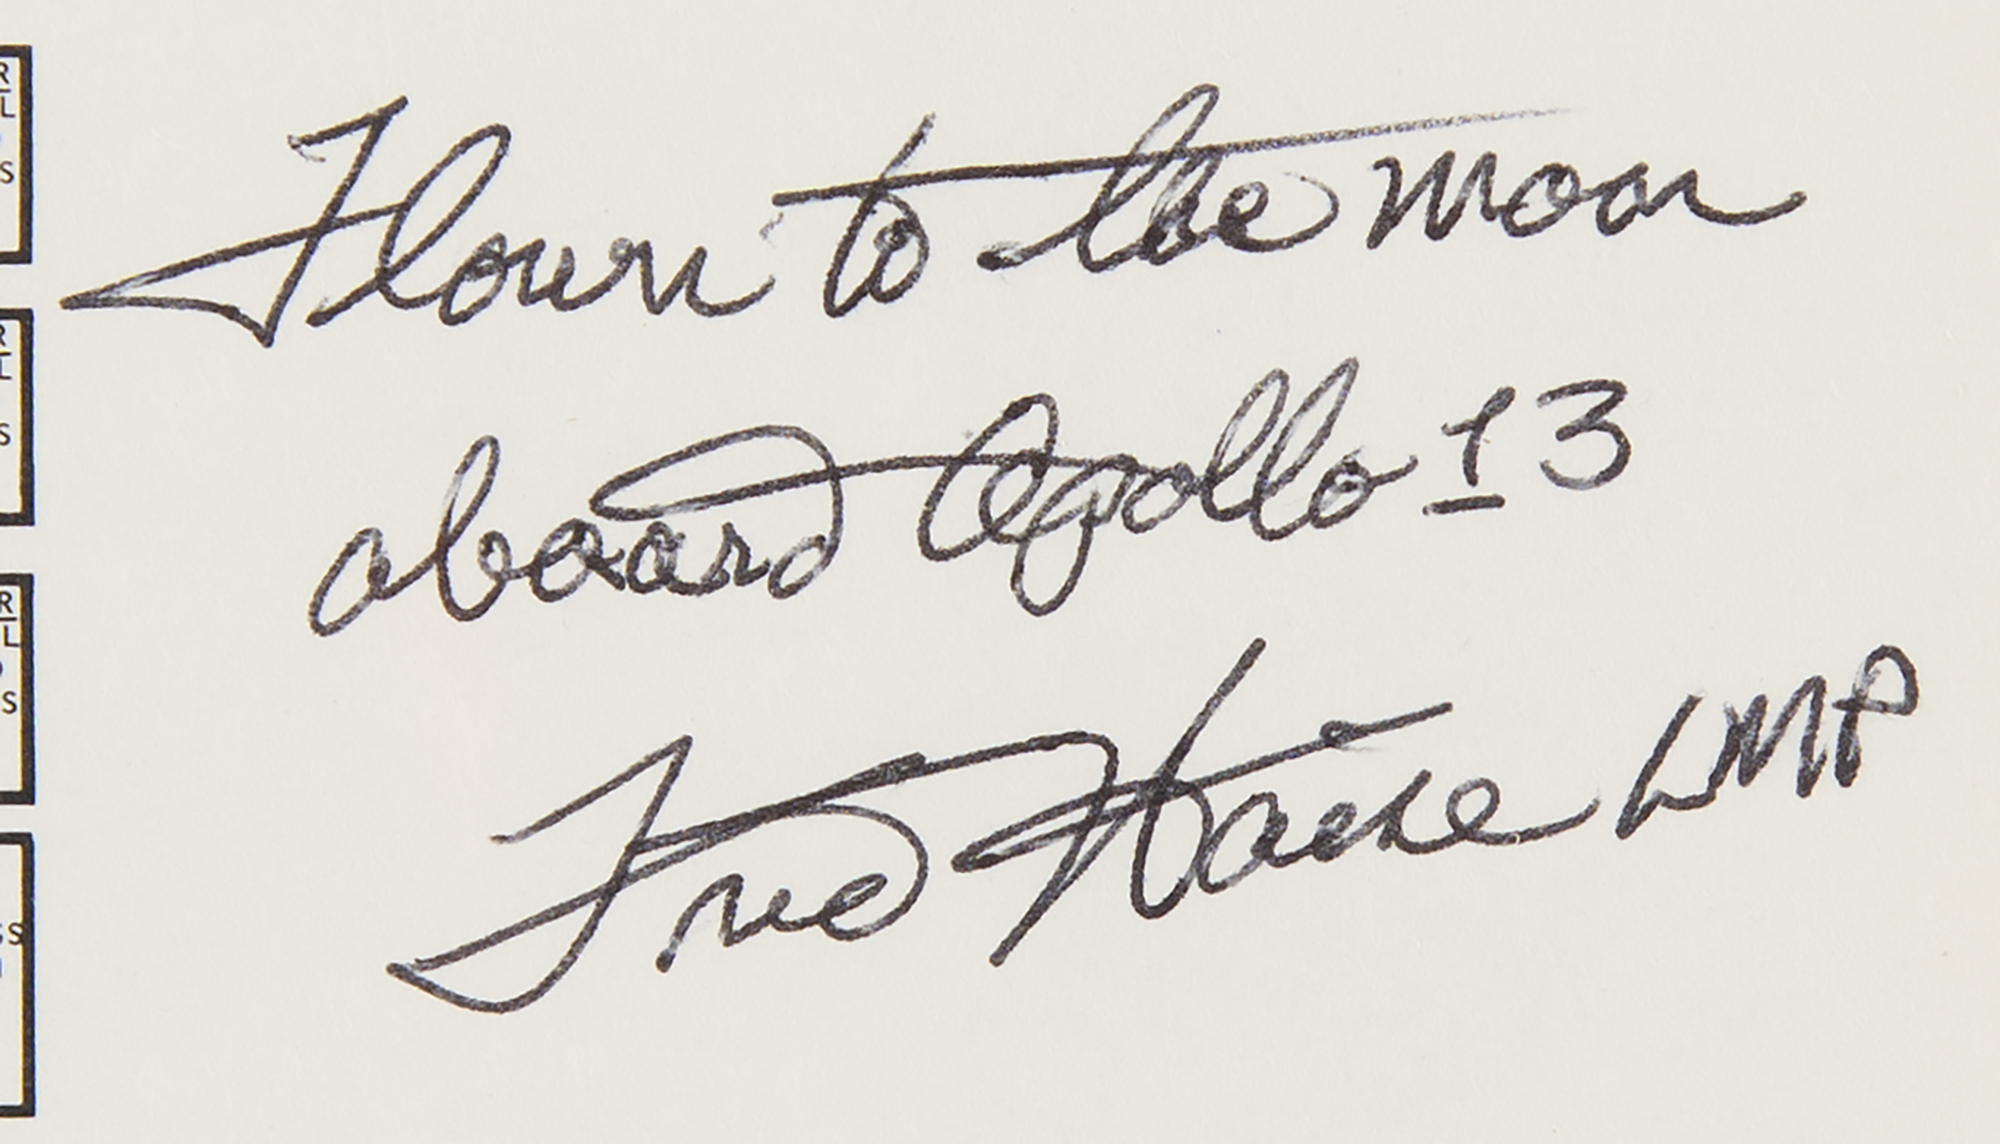 R
L
S
Flown to the moon
R
L
S
aboard Apollo 13
R
L
S
Fred Haise LMP
SS